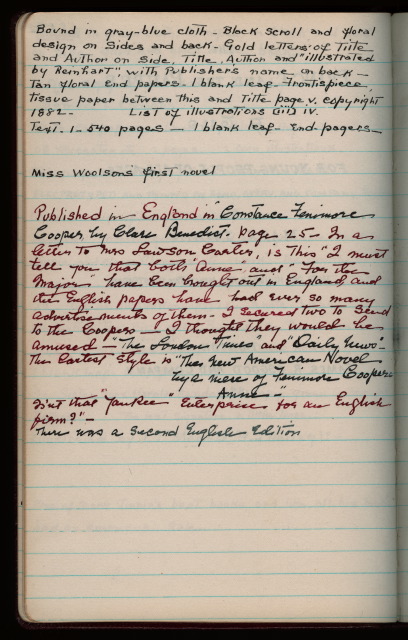 Bound in gray-blue cloth - Black scroll and floral
design on sides and back - Gold letters of Title
and Author on side, Title, Author and "illustrated
by Reinhart", with Publishers name on back -
Tan floral End papers - 1 blank leaf - Frontispiece,
tissue paper between this and Title page v. copyright
1882 - List of illustrations iii iv.
Text. 1 - 540 pages - 1 blank leaf - End papers -
Miss Woolsons first novel
Published in England in "Constance Fenimore
Cooper by Clare Benedict. page 25 - In a
letter to Mrs Lawson Carter, is this "I must
tell you that both 'Anne' and "For the
Major" have been brought out in England, and
the English papers have had ever so many
advertisements of them - I secured two to send
to the Coopers - I thought they would be
amused - "The London Times" and "Daily News" -
The latest style is "The New American Novel
by a niece of Fenimore Cooper
Anne - "
Isn't that "Yankee" Enterprise for an English
firm?" -
There was a second English Edition